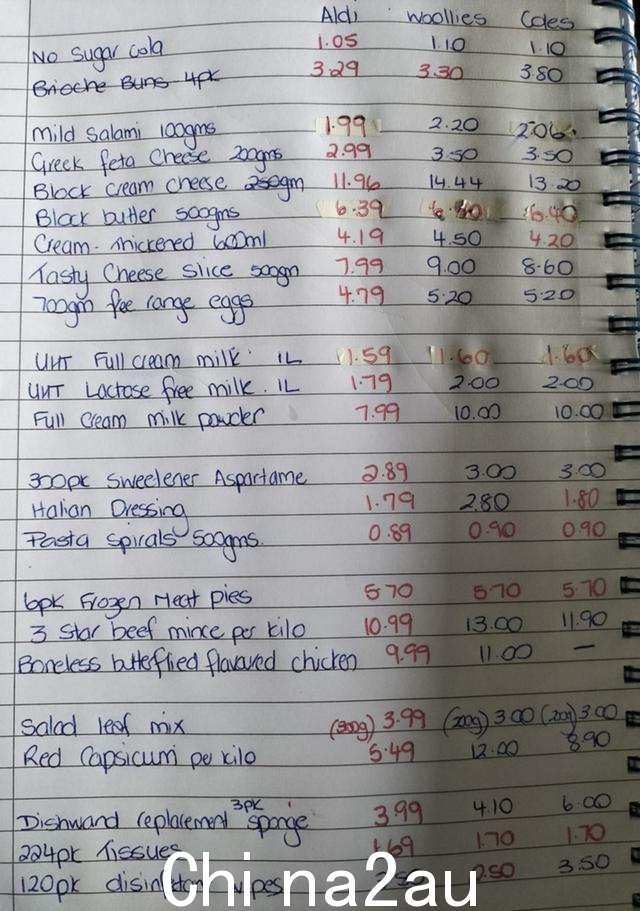 Aldi Woollies Coles
No Sugar cola 1.05 1.10 1.10
Brioche Buns 4pk 3.29 3.30 3.80
Mild Salami 100gms 1.99 2.20 2.06
Greek feta Cheese 200gms 2.99 3.50 3.50
Block cream cheese 250gm 11.96 14.44 13.20
Block butter 500gms 6.39 6.40 6.40
Cream - thickened 600ml 4.19 4.50 4.20
Tasty Cheese Slice 500gm 7.99 9.00 8.60
700gm fee range eggs 4.79 5.20 5.20
UHT Full cream milk 1L 1.59 1.60 1.60
UHT Lactose free milk . 1L 1.79 2.00 2.00
Full Cream milk powder 7.99 10.00 10.00
300pk Sweetener Aspartame 2.89 3.00 3.00
Italian Dressing 1.79 2.80 1.80
Pasta Spirals 500gms. 0.89 0.90 0.90
6pk Frozen Meat Pies 5.70 5.70 5.70
3 Star beef mince per kilo 10.99 13.00 11.90
Boneless butteflied flavoured chicken 9.99 11.00 —
Salad leaf mix (300g) 3.99 (200g) 3.00 (200g) 3.00
Red Capsicum per kilo 5.49 12.00 8.90
Dishwand replacement 3pk sponge 3.99 4.10 6.00
224pk Tissues 1.69 1.70 1.70
120pk wipes 3.50
Chi na2au